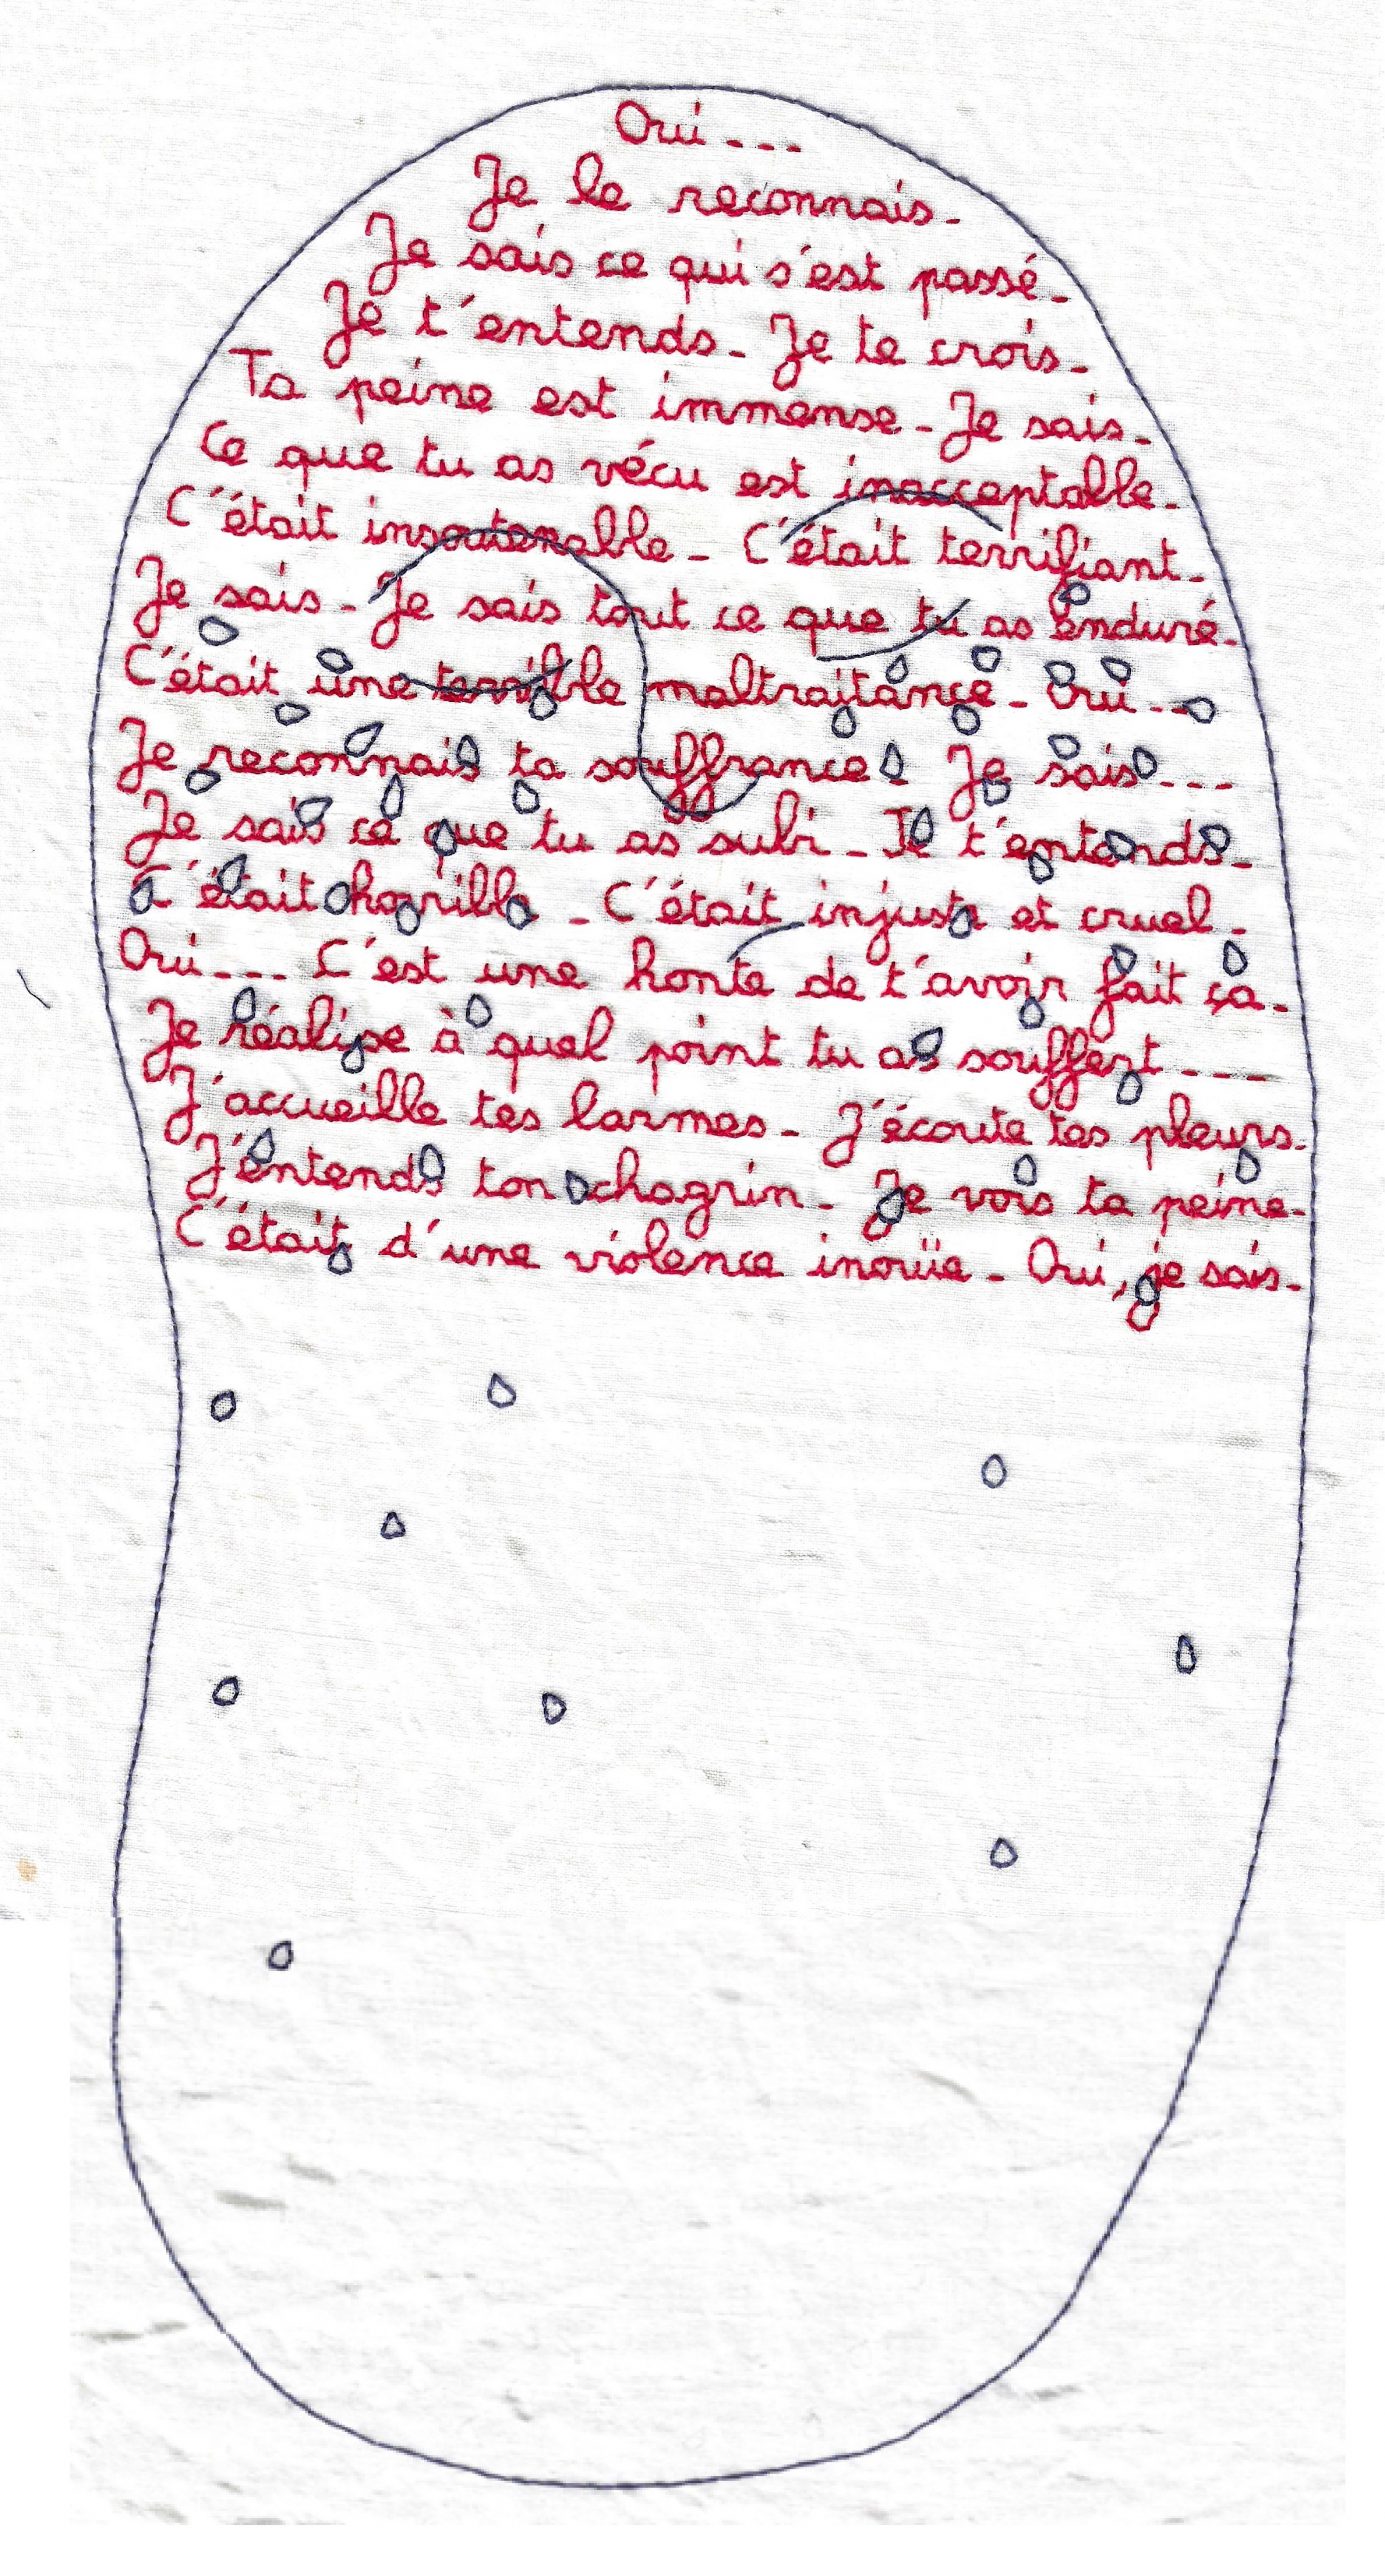 Oui...
Je le reconnais.
Je sais ce qui s'est passé.
Je t'entends. Je te crois.
Ta peine est immense. Je sais.
Ce que tu as vécu est inacceptable.
C'était insoutenable. C'était terrifiant.
Je sais. Je sais tout ce que tu as enduré.
C'était une terrible maltraitance. Oui...
Je reconnais ta souffrance. Je sais...
Je sais ce que tu as subi. Je t'entends.
C'était horrible. C'était injuste et cruel.
Oui... C'est une honte de t'avoir fait ça.
Je réalise à quel point tu as souffert...
J'accueille tes larmes. J'écoute tes pleurs.
J'entends ton chagrin. Je vois ta peine.
C'était d'une violence inouïe. Oui, je sais.